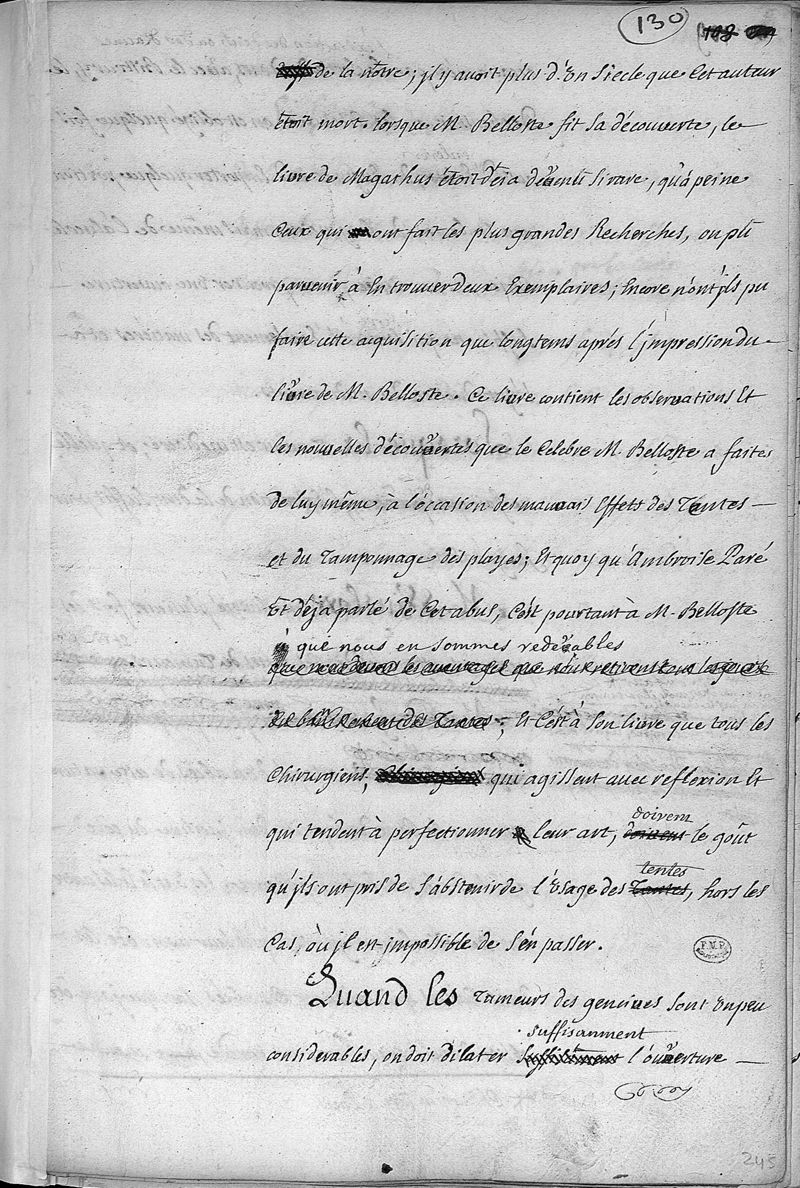 130
de la nôtre; jl y avoit plus d'Un Siecle que Cet auteur
étoit mort. lorsque M. Belloste fit Sa découverte, le
livre de Magathus étoit déja devenu Si rare, qu'à peine
Ceux qui ont fait les plus grandes Recherches, on pû
parvenir à En trouver deux Exemplaires; Encore n'ont jls pu
faire cette acquisition que longtems après l'jmpression du
livre de M. Belloste. Ce livre contient les observations Et
les nouvelles découvertes que le Celebre M. Belloste a faites
de luy même, à l'occasion des mauvais Effets des Tentes
et du Tamponnage des playes; Et quoy qu'Ambroise Paré
Et déja parlé de Cet abus, C'est pourtant à M. Belloste
que nous en sommes redevables
; Et C'est à Son livre que tous les
Chirurgiens, qui agissent avec reflexion Et
qui tendent à perfectionner leur art, doivent le goût
doivem
qu'jls ont pris de S'abstenir de l'Usage des Tantes, hors les
tentes
Cas, où jl est jmpossible de S'en passer.
Quand les Tumeurs des gencives Sont Un peu
suffisanment
considerables, on doit dilater l'ouverture
F.M.P.
245